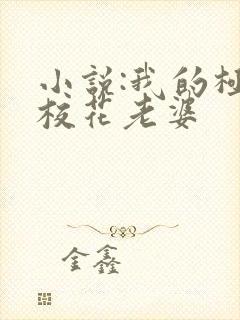 小说:我的极
校花老婆
金鑫